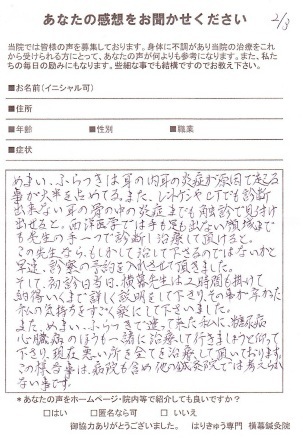 あなたの感想をお聞かせください
2/3
当院では皆様の声を募集しております。身体に不調があり当院の治療をこれ
から受けられる方にとって、あなたの声が何よりも参考になります。また、私た
ちの毎日の励みにもなります。些細な事でも結構ですのでお教え下さい。
■お名前(イニシャル可)
■住所
■年齢 ■性別 ■職業
■症状
めまい、ふらつきは耳の内耳の炎症が原因で起る
事が大半を占めてる。また、レントゲンやCTでも診断
出来ない耳の骨の中の炎症までも触診で見付け
出せると。西洋医学では手も足も出ない領域まで
も先生の手一つで診断し治療して頂けると。
この先生なら、もしかして治して下さるのではないかと
早速、診察の予約を入れさせて頂きました。
そして、初診の当日、横幕先生は2時間も掛けて
納得いくまで詳しく説明をして下さり、その事が
私の気持ちをすごく楽にして下さいました。
また、めまい、ふらつきで通って来た私に、糖尿病
心臓病のほうも一諸に治療して行きましょうと仰って
下さり、現在悪い所を全てを治療して頂いております。
この様な事は、病院も含め他の鍼灸院では考えられ
ない事です。
*あなたの声をホームページ・院内等で紹介しても良いですか?
□はい □匿名なら可 □いいえ
御協力ありがとうございました。 はりきゅう専門 横幕鍼灸院